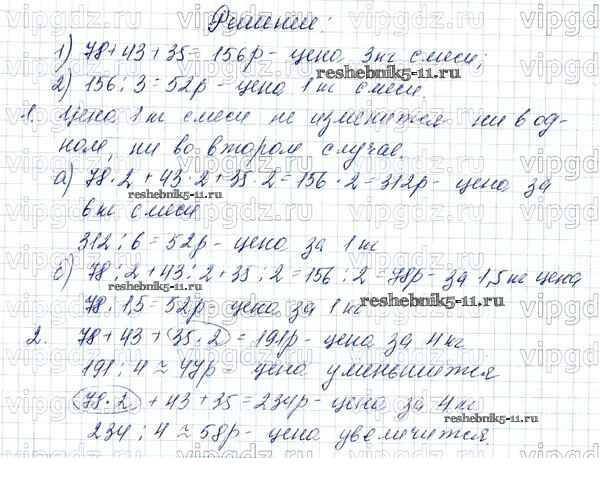 Решение:
1) 78+43+35=156р - цена 3кг смеси;
2) 156:3=52р - цена 1кг смеси.
1. Цена 1кг смеси не изменится ни в од-
ном, ни во втором случае.
а) 78·2+43·2+35·2=156·2=312р - цена за
6кг смеси
312:6=52р - цена за 1кг
б) 78:2+43:2+35:2=156:2=78р - за 1,5кг цена
78:1,5=52р - цена за 1кг
2. 78+43+35·2=191р - цена за 4кг
191:4≈47р - цена уменьшится
78·2+43+35=234р - цена за 4кг
234:4≈58р - цена увеличится.
reshebnik5-11.ru
reshebnik5-11.ru
reshebnik5-11.ru
reshebnik5-11.ru
reshebnik5-11.ru
vipgdz.ru